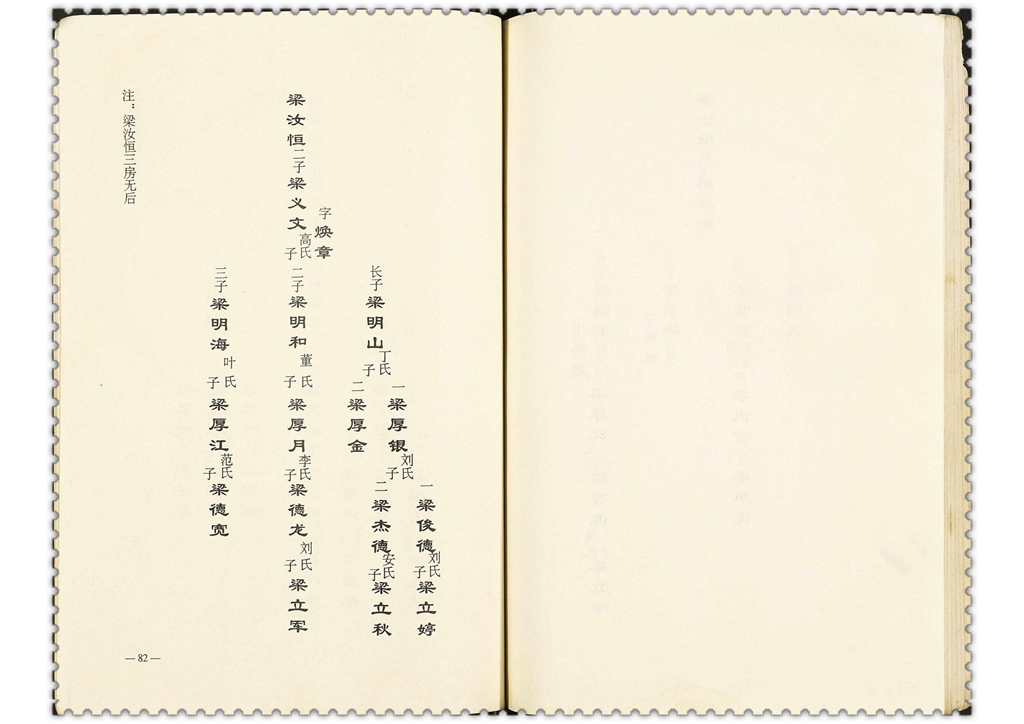 梁汝恒二子梁义文高氏子
字焕章
长子梁明山丁氏子
一梁厚银刘氏子
一梁俊德刘氏子梁立婷
二梁杰德安氏子梁立秋
二梁厚金
二子梁明和董氏子梁厚月李氏子梁德龙刘氏子梁立军
三子梁明海叶氏子梁厚江范氏子梁德宽
注：梁汝恒三房无后
—82—